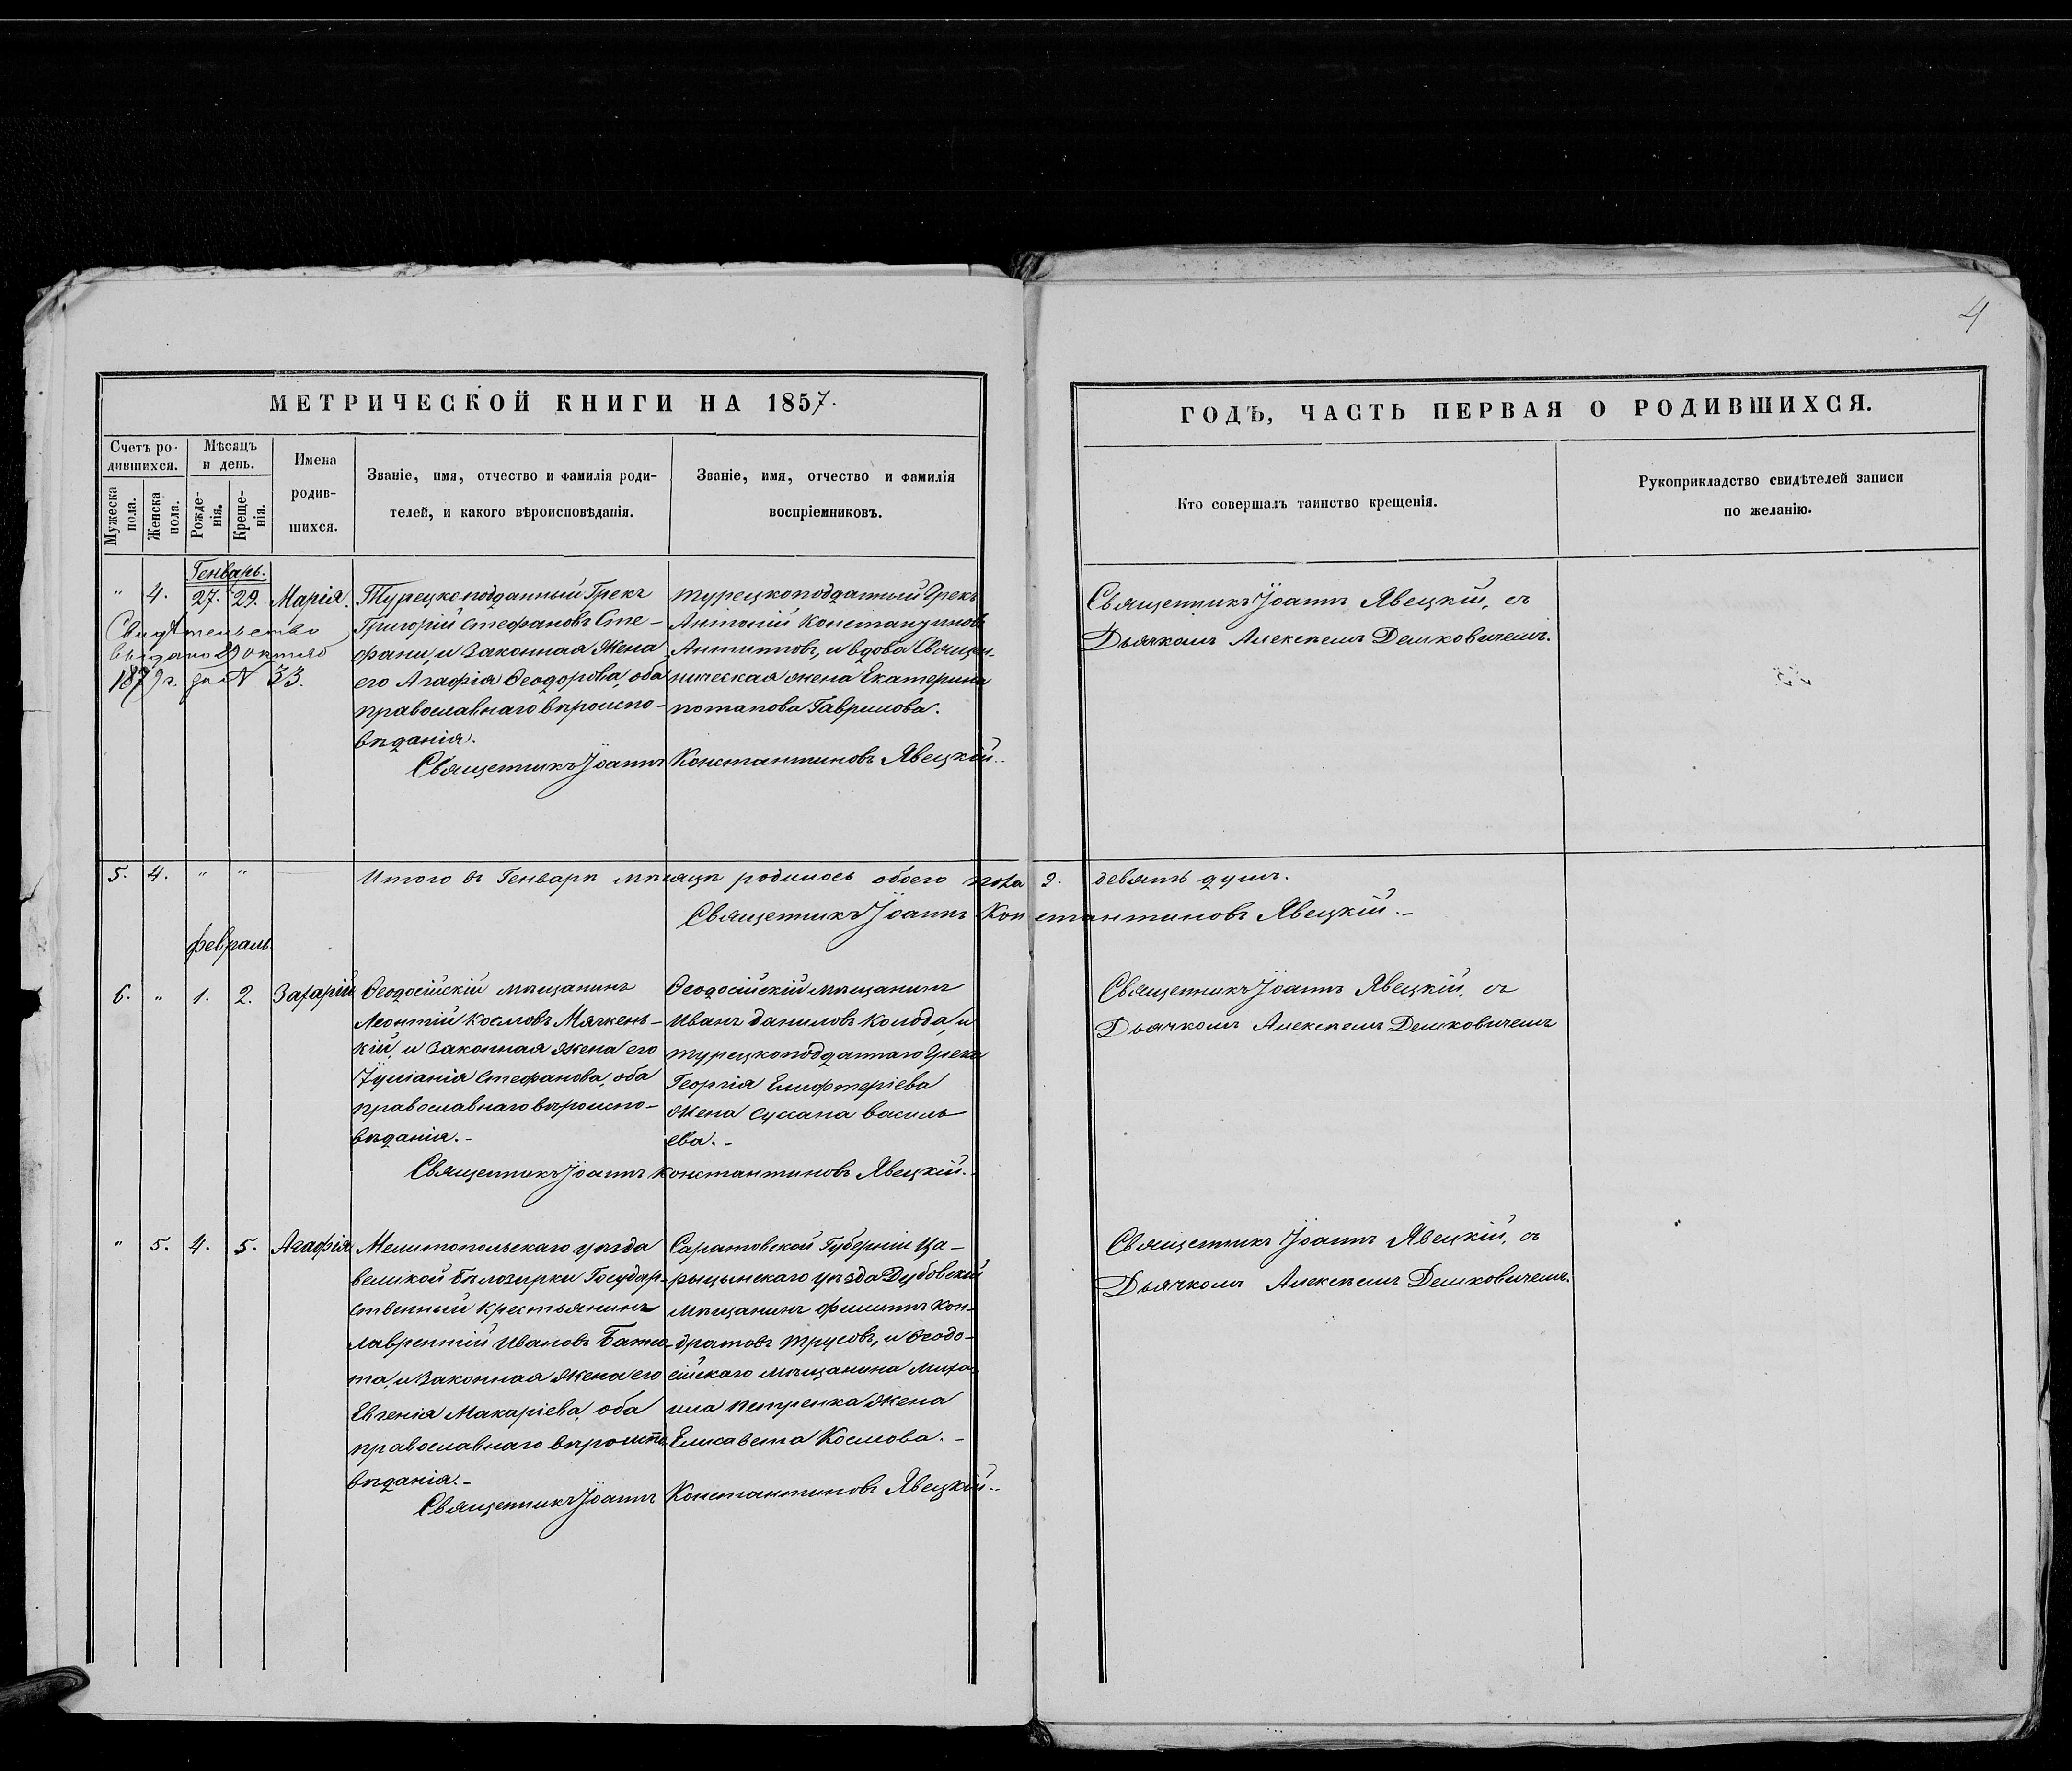 4
МЕТРИЧЕСКОЙ КНИГИ НА 1857.
ГОДЪ, ЧАСТЬ ПЕРВАЯ О РОДИВШИХСЯ.
Счетъ ро-
дившихся.
Мужеска
пола.
Женска
пола.
Мѣсяцъ
и день.
Рожде-
нія.
Креще-
нія.
Имена
родив-
шихся.
Званіе, имя, отчество и фамилія роди-
телей, и какого вѣроисповѣданія.
Званіе, имя, отчество и фамилія
воспріемниковъ.
Кто совершалъ таинство крещенія.
Рукоприкладство свидѣтелей записи
по желанію.
Генварь.
" 4. 27. 29. Марія.
Свидѣтельство
выдано 29 октяб
1879 г. за N 33.
Турецкоподданный Грекъ
Григорій Стефановъ Сте-
фани, и Законная Жена
его Агафія Ѳеодорова, оба
православнаго вѣроиспо-
вѣданія.
турецкоподданный Грекъ
Антоній Константиновъ
Антиповъ, и вдова Священ-
ническая жена Екатерина
потапова Гаврилова.
Священникъ Іоаннъ Константиновъ Явецкій.
Священникъ Іоаннъ Явецкій, съ
Дьячкомъ Алексѣемъ Демковичемъ.
5. 4. " " Итого въ Генварѣ мѣсяцѣ родилось обоего пола 9. девять душъ.
Священникъ Іоаннъ Константиновъ Явецкій.-
февраль
6. " 1. 2. Захарій
Ѳеодосійскій мѣщанинъ
Леонтій Космовъ Мячкень-
кій, и Законная Жена его
Іуліанія Стефанова, оба
православнаго вѣроиспо-
вѣданія.-
Ѳеодосійскій мѣщанинъ
Иванъ Даниловъ Колода, и
турецкоподданнаго Грека
Георгія Елифтеріева
Жена Сусана василь
ева.-
Священникъ Іоаннъ Константиновъ Явецкій.-
Священникъ Іоаннъ Явецкій, съ
Дьячкомъ Алексѣемъ Демковичемъ
" 5. 4. 5. Агафія
Мелитопольскаго уѣзда
великой Бѣлозирки Государ-
ственный Крестьянинъ
Лаврентій Ивановъ
та, и Законная Жена его
Евгенія Макаріева, оба
православнаго вѣроиспо
вѣданія.-
Саратовской Губерніи Ца-
рыцынскаго уѣзда Дубовскій
Мѣщанинъ филиппъ Кон-
дратовъ Трусовъ, и Ѳеодо-
сійскаго мѣщанина Миха-
ила Петренка Жена
Елисавета Космова.-
Священникъ Іоаннъ Константиновъ Явецкій.-
Священникъ Іоаннъ Явецкій, съ
Дьячкомъ Алексѣемъ Демковичемъ.